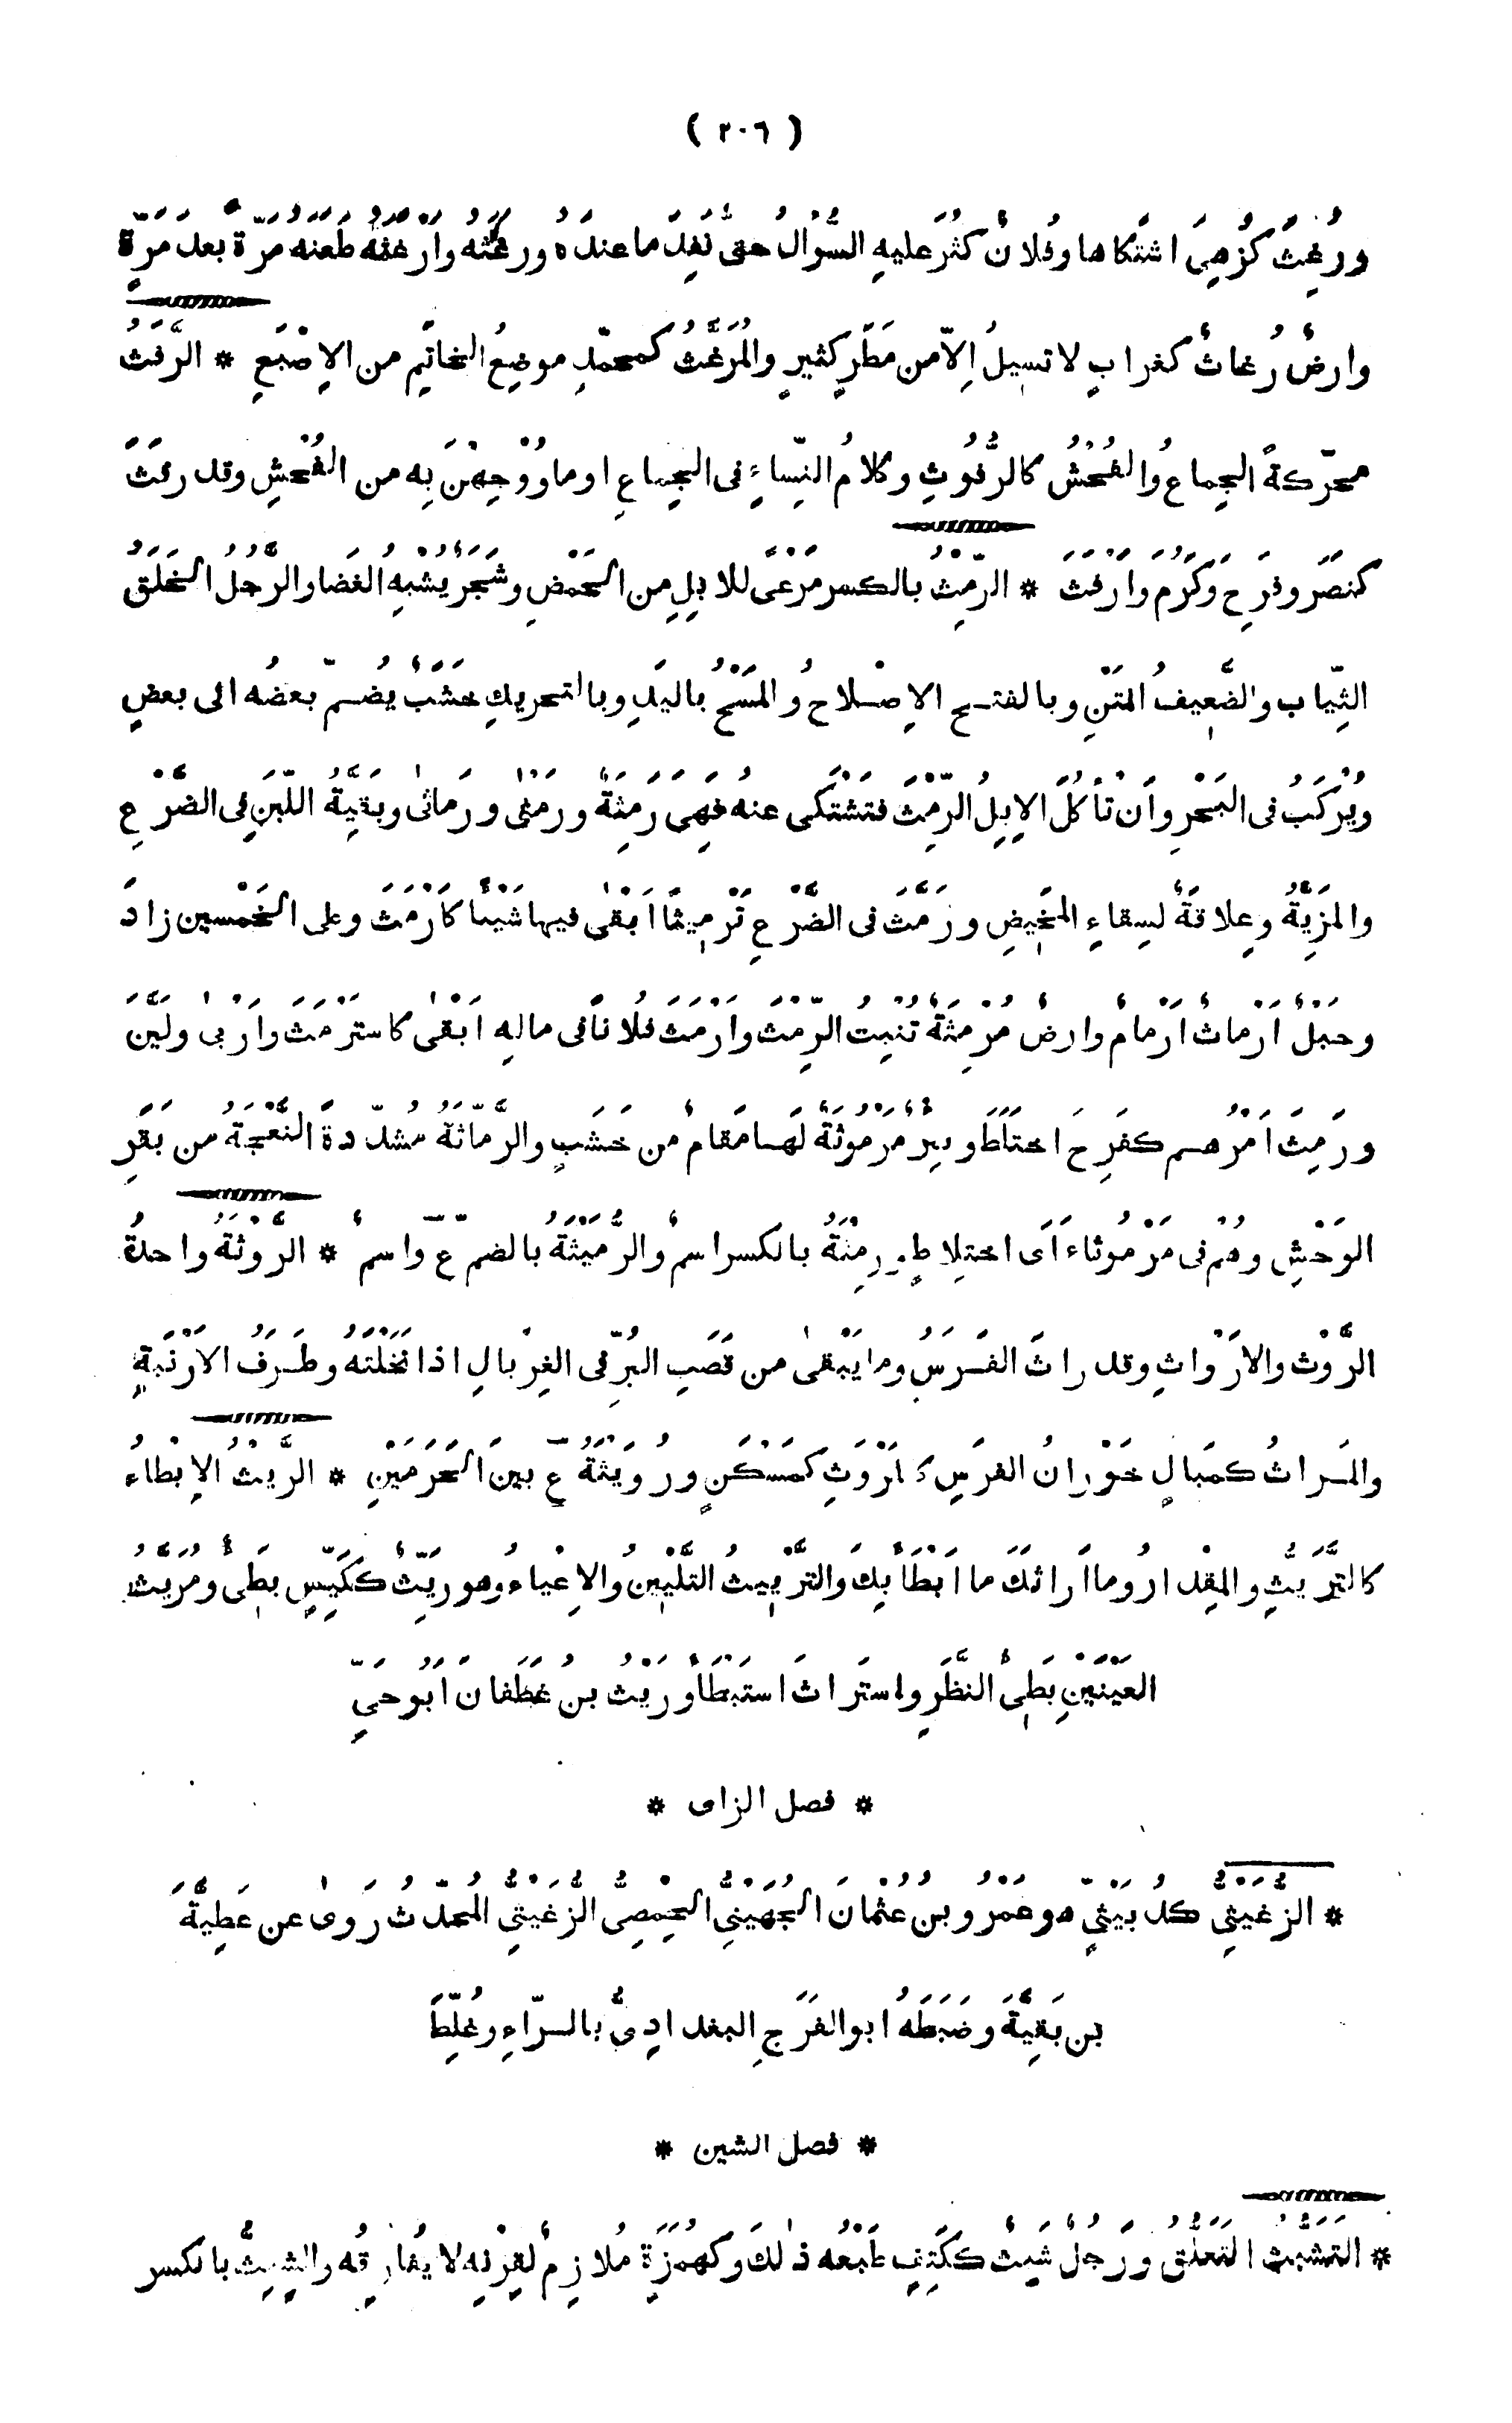 ( ٢٠٦ )
ورُغِثَ كزُهِىَ اشتَكاها وفُلانٌ كثُرَ عليهِ السُّؤالُ حتى نَفِدَ ما عندَه ورغَثَه وأرْغَثَه طَعَنَه مَرّةً بعدَ مَرّةٍ
وارضٌ رُغاثٌ كغرابٍ لا تسيلُ اِلاّ من مَطَرٍ كثيرٍ والمُرَغَّثُ كمحمّدٍ موضِعُ الخاتَمِ من الاِصْبَعِ * الرَّفَثُ
محرّكةً الجِماعُ والفُحْشُ كالرُّفُوثِ وكلامُ النِّساءِ فى الجِماعِ او ما وُوْجِهْنَ بِه من الفُحْشِ وقد رفَثَ
كنصَرَ وفرِحَ وكَرُمَ وأرْفَثَ * الرِّمْثُ بالكسر مَرْعًى للابِلِ من الحَمْضِ وشَجَرٌ يُشْبِهُ الغَضا والرَّجُلُ الخَلَقُ
الثِّيابِ والضَّعِيفُ المَتْنِ وبالفتح الاِصْلاحُ والمَسْحُ باليَدِ وبالتحريكِ خَشَبٌ يُضَمّ بعضُه الى بعضٍ
ويُرْكَبُ فى البَحْرِ وأن تأْكُلَ الاِبِلُ الرِّمْثَ فتَشْتَكى عنهُ فهِىَ رَمِثَةٌ ورَمْثٰى ورَماثٰى وبقيّةُ اللّبَنِ فى الضَّرْعِ
والمَزِيَّةُ وعِلاقةٌ لسِقاءِ المَخِيضِ ورَمَّثَ فى الضَّرْعِ تَرْمِيثًا اَبْقٰى فيها شَيْئًا كأرْمَثَ وعلى الخَمْسين زادَ
وحَبْلٌ أرْماثٌ أرْمامٌ وارضٌ مُرْمِثَةٌ تُنْبِتُ الرِّمْثَ وأرْمَثَ فلانًا فى مالِه اَبْقٰى كاستَرْمَثَ وأرْبٰى ولَيَّنَ
ورَمِثَ اَمْرُهم كفَرِحَ اختَلَطَ وبِئرٌ مَرْمُوثَةٌ لَها مَقامٌ من خَشَبٍ والرَّمّاثَةُ مشدّدةً النَّعْجَةُ من بَقَرِ
الوَحْشِ وهُمْ فى مَرْمُوثاءَ اَى اختِلاطٍ ورِمْثَةُ بالكسر اسمٌ والرُّمَيْثَةُ بالضم ع واسمٌ * الرَّوْثَةُ واحدةُ
الرَّوْثِ والاَرْواثِ وقد راثَ الفَرَسُ وما يَبْقٰى من قَصَبِ البُرِّ فى الغِرْبالِ اذا نَخَلْتَه وطَرَفُ الاَرْنَبَةِ
والمَراثُ كمَبالٍ خَوْرانُ الفَرَسِ كالمَرْوَثِ كمَسْكَنٍ ورُوَيْثَةُ ع بينَ الحَرَمَيْنِ * الرَّيْثُ الاِبْطاءُ
كالتَّرَيُّثِ والمِقْدارُ وما أراثَكَ ما اَبْطَأَ بِكَ والتَّرْيِيثُ التَّلْيِينُ والاِعْياءُ وهو رَيِّثٌ كَكَيِّسٍ بطِىءٌ ومُرَيَّثُ
العَيْنَيْنِ بَطِىءُ النَّظَرِ واستَراثَ استَبْطَأَ ورَيْثُ بن غَطَفانَ اَبُو حَىٍّ
* فصل الزاى *
* الزُّغَيْثىُّ كدُبَيْثىٍّ هو عَمْرُو بن عُثْمانَ الجُهَيْنىُّ الحِمْصِىُّ الزُّغَيْثىُّ المُحدّثُ رَوٰى عن عَطِيَّةَ
بن بَقِيَّةَ وضَبَطَهُ ابو الفَرَجِ البغدادِىُّ بالرّاءِ وغُلِّطَ
* فصل الشين *
* التَّشَبُّثُ التعَلُّقُ ورَجُلٌ شَبِثٌ كَكَتِفٍ طَبْعُه ذٰلكَ وكهُمَزَةٍ مُلازِمٌ لقِرْنِه لا يُفارِقُه والشِّبِثُّ بالكسر